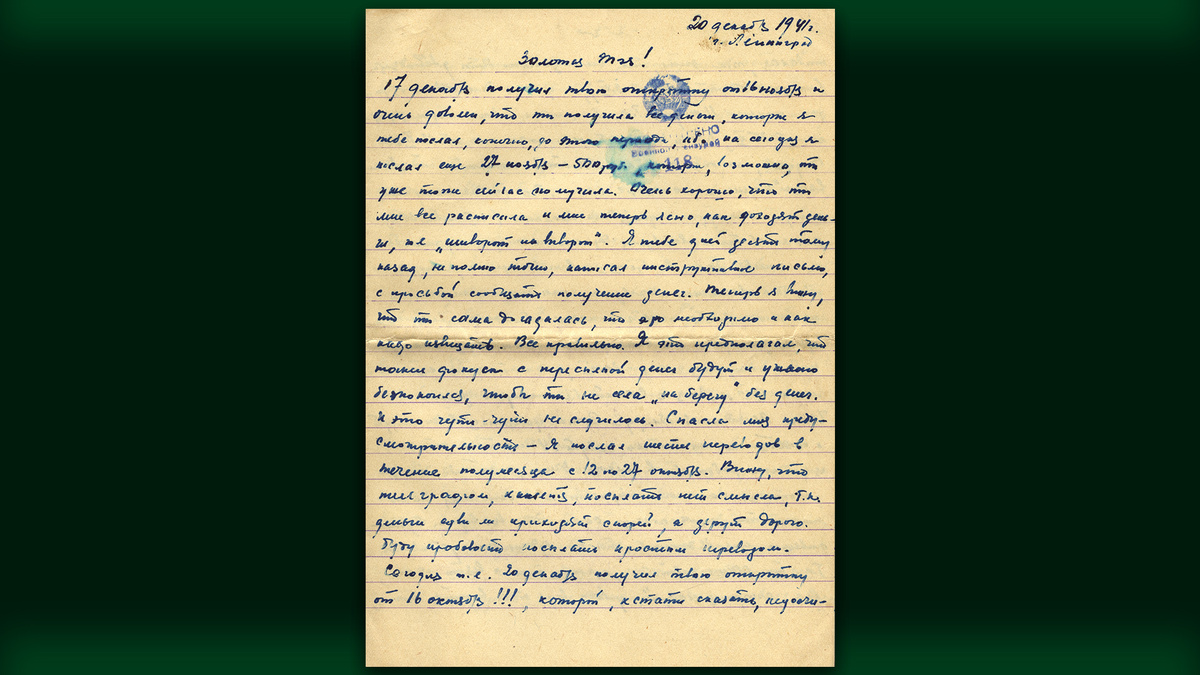 20 декабря 1941г.
г. Ленинград
Золотая Тая!
17 декабря получил твою открытку от 16 ноября и
очень доволен, что ты получила все деньги, которые я
тебе послал, конечно, до этого периода, на сегодня я
послал еще 27 ноября – 500 руб, которые, возможно, ты
уже тоже сейчас получила. Очень хорошо, что ты
мне все расписала и мне теперь ясно, как доходят день-
ги, т.е. „шиворот на выворот". Я тебе дней десять тому
назад, не помню точно, написал инструктивное письмо,
с просьбой сообщать получение денег. Теперь я вижу,
что ты сама догадалась, что это необходимо и как
надо извещать. Все правильно. Я это предполагал, что
такие фокусы с пересылкой денег будут и ужасно
безпокоился, чтобы ты не села „на берегу" без денег.
И это чуть-чуть не случилось. Спасла моя преду-
смотрительность – Я послал шесть переводов в
течение полумесяца с 12 по 27 октября. Вижу, что
телеграфом, кажется, посылать нет смысла, т.к.
деньги едва ли приходят скорей, а дерут дорого.
Буду пробовать посылать простым переводом.
Сегодня т.е. 20 декабря получил твою открытку
от 16 октября!!!, которой, кстати сказать, недосчи-
Военной Цензурой
118